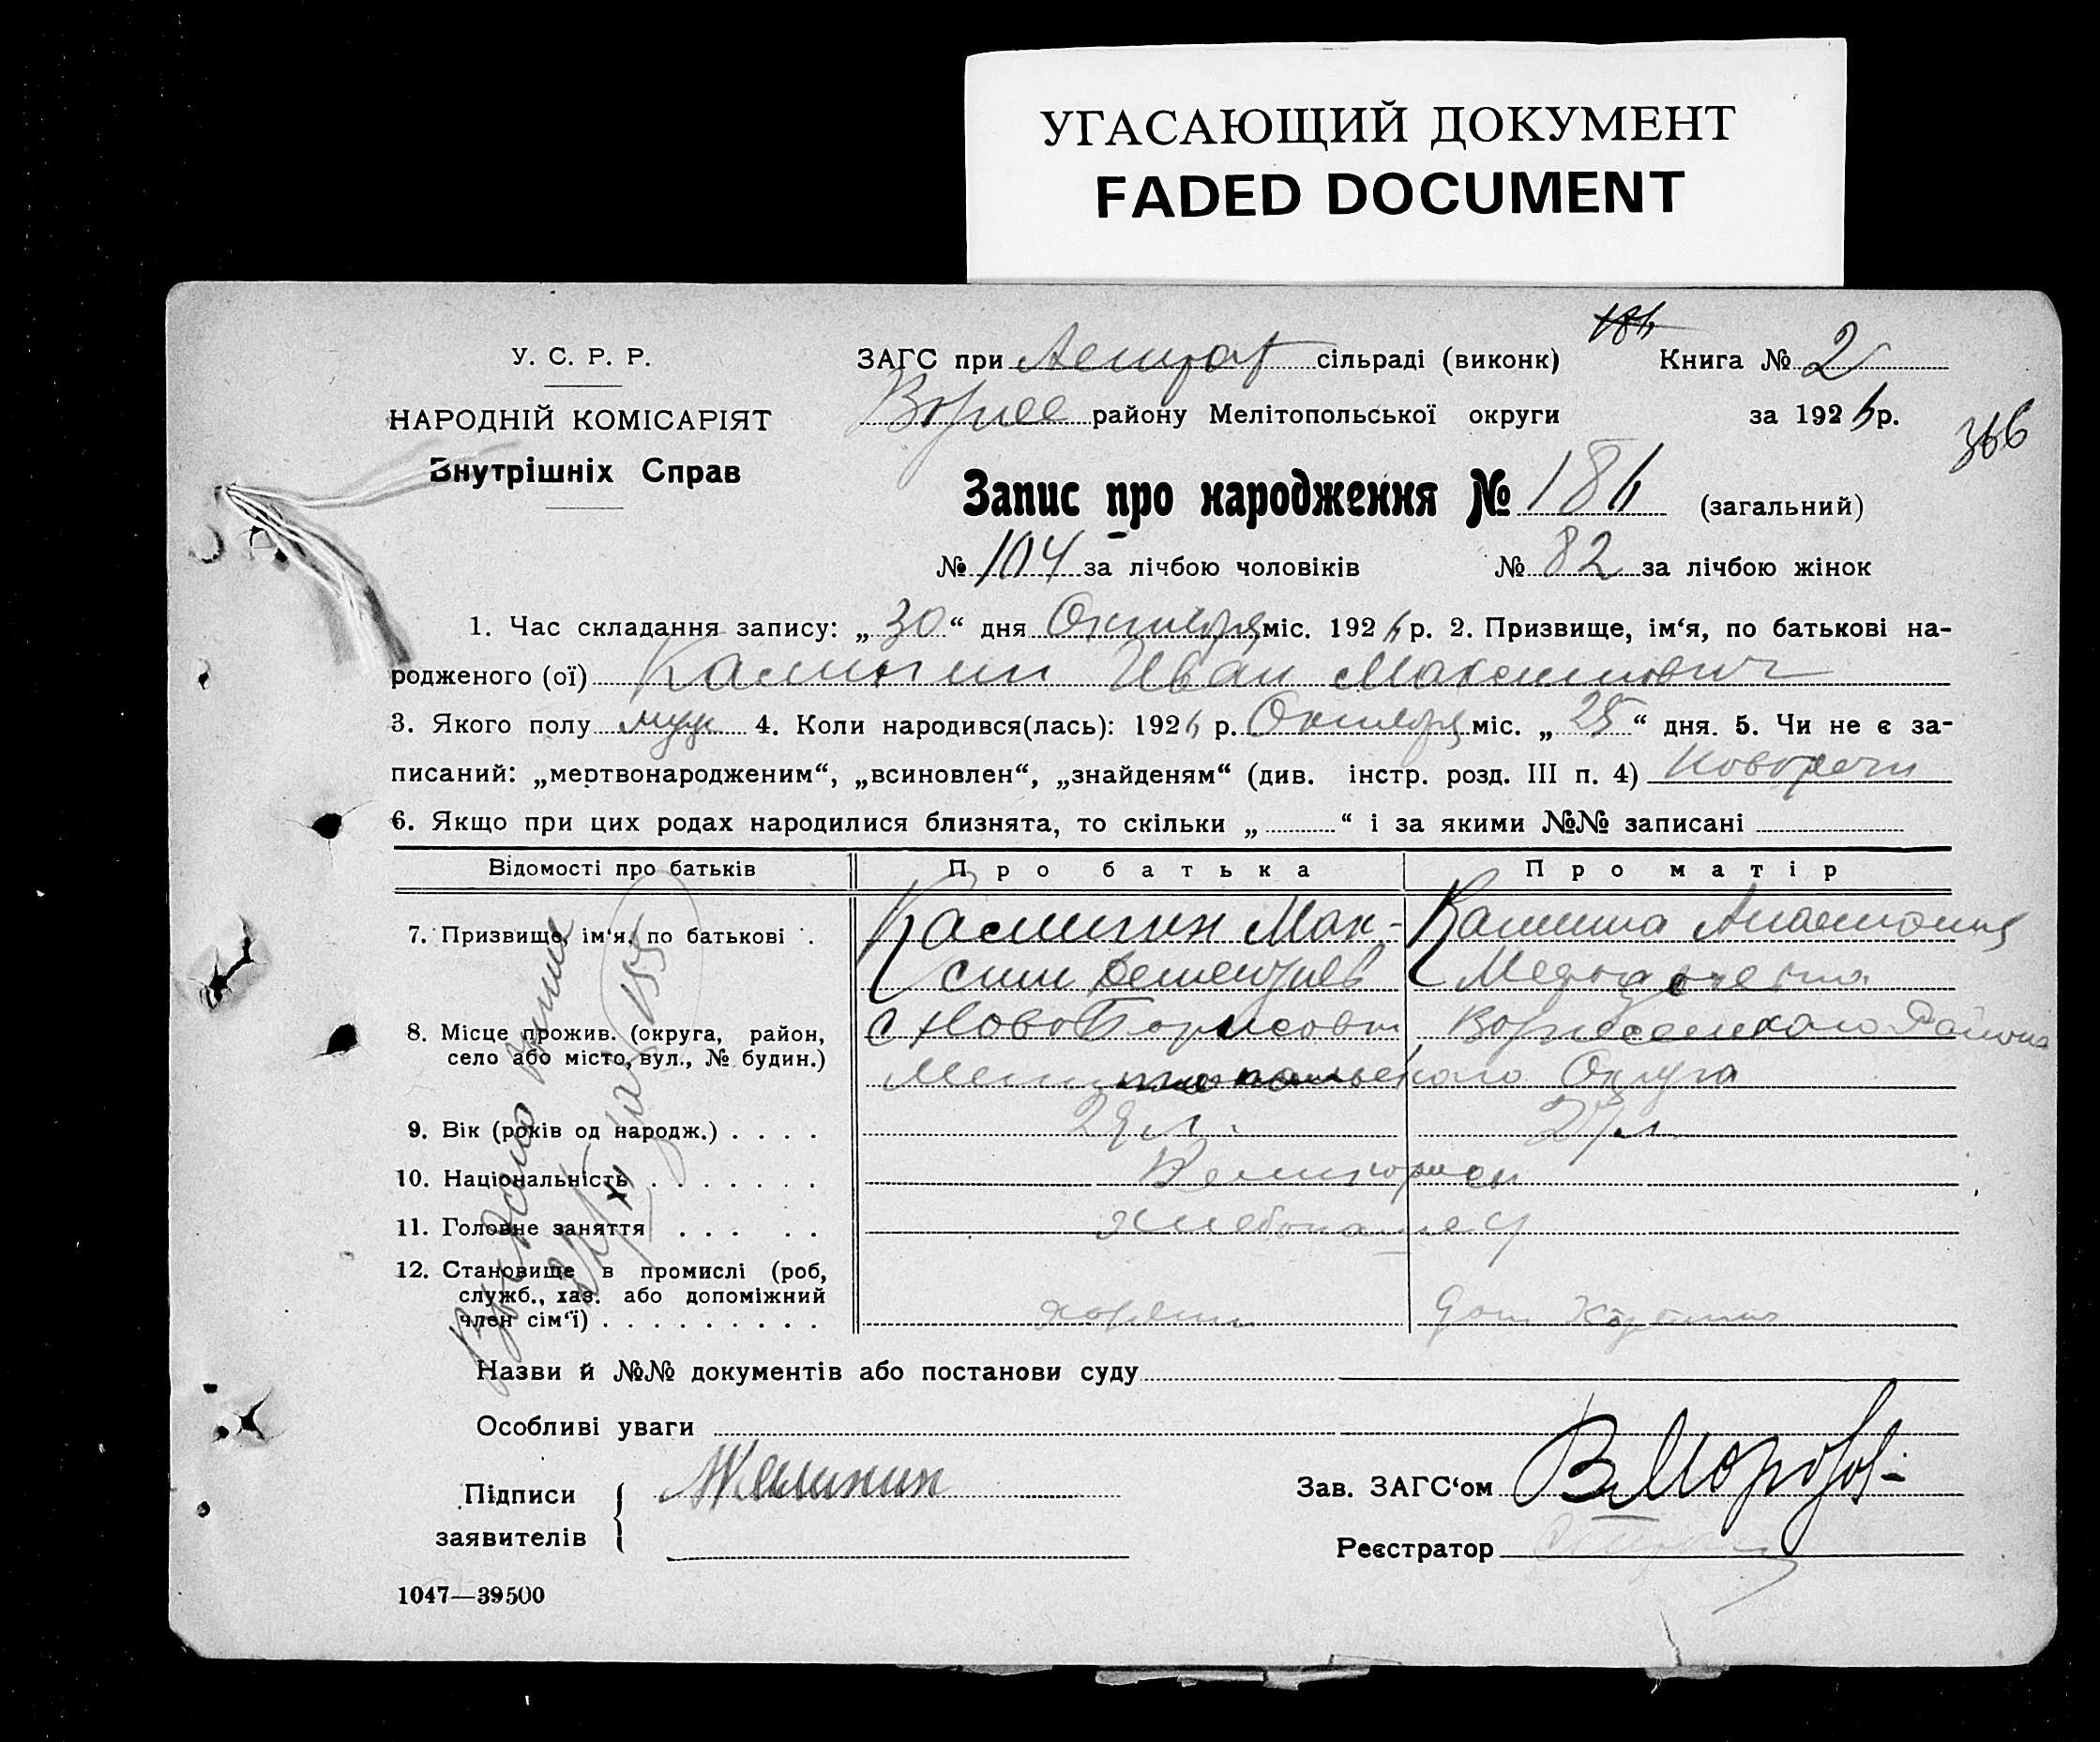 УГАСАЮЩИЙ ДОКУМЕНТ
FADED DOCUMENT
У. С. Р. Р.
НАРОДНІЙ КОМІСАРІЯТ
Внутрішніх Справ
ЗАГС при сільраді (виконк) 186 Книга № 2
Вознес району Мелітопольської округи за 1926 р.
366
Запис про народження № 186 (загальний)
№ 104 за лічбою чоловіків № 82 за лічбою жінок
1. Час складання запису: „ 30 “ дня Октября міс. 1926 р. 2. Призвище, ім‘я, по батькові на-
родженого (ої) Калинин Иван Максимович
3. Якого полу муж 4. Коли народився(лась): 1926 р. Октября міс. „ 25 “ дня. 5. Чи не є за-
писаний: „мертвонародженим“, „всиновлен“, „знайденям“ (див. інстр. розд. III п. 4)
6. Якщо при цих родах народилися близнята, то скільки „ “ і за якими №№ записані
Відомості про батьків Про батька Про матір
7. Призвище, ім‘я, по батькові . Калинин Мак- Калинина Анастасия
сим Дементьев
8. Місце прожив. (округа, район, с Ново Борисовки Вознесенского Района
село або місто, вул., № будин.) Мелитопольского Округа
9. Вік (років од народж.) . . . .
10. Національність . . . . . . . Великоросы
11. Головне заняття . . . . . Хлебопашец
12. Становище в промислі (роб,
служб., хаз. або допоміжний
член сім‘ї) . . . . . . . . . хозяин дом
Назви й №№ документів або постанови суду
Особливі уваги
Підписи заявителів МКалинин
Зав. ЗАГС‘ом В Морозов
Реєстратор
1047—39500